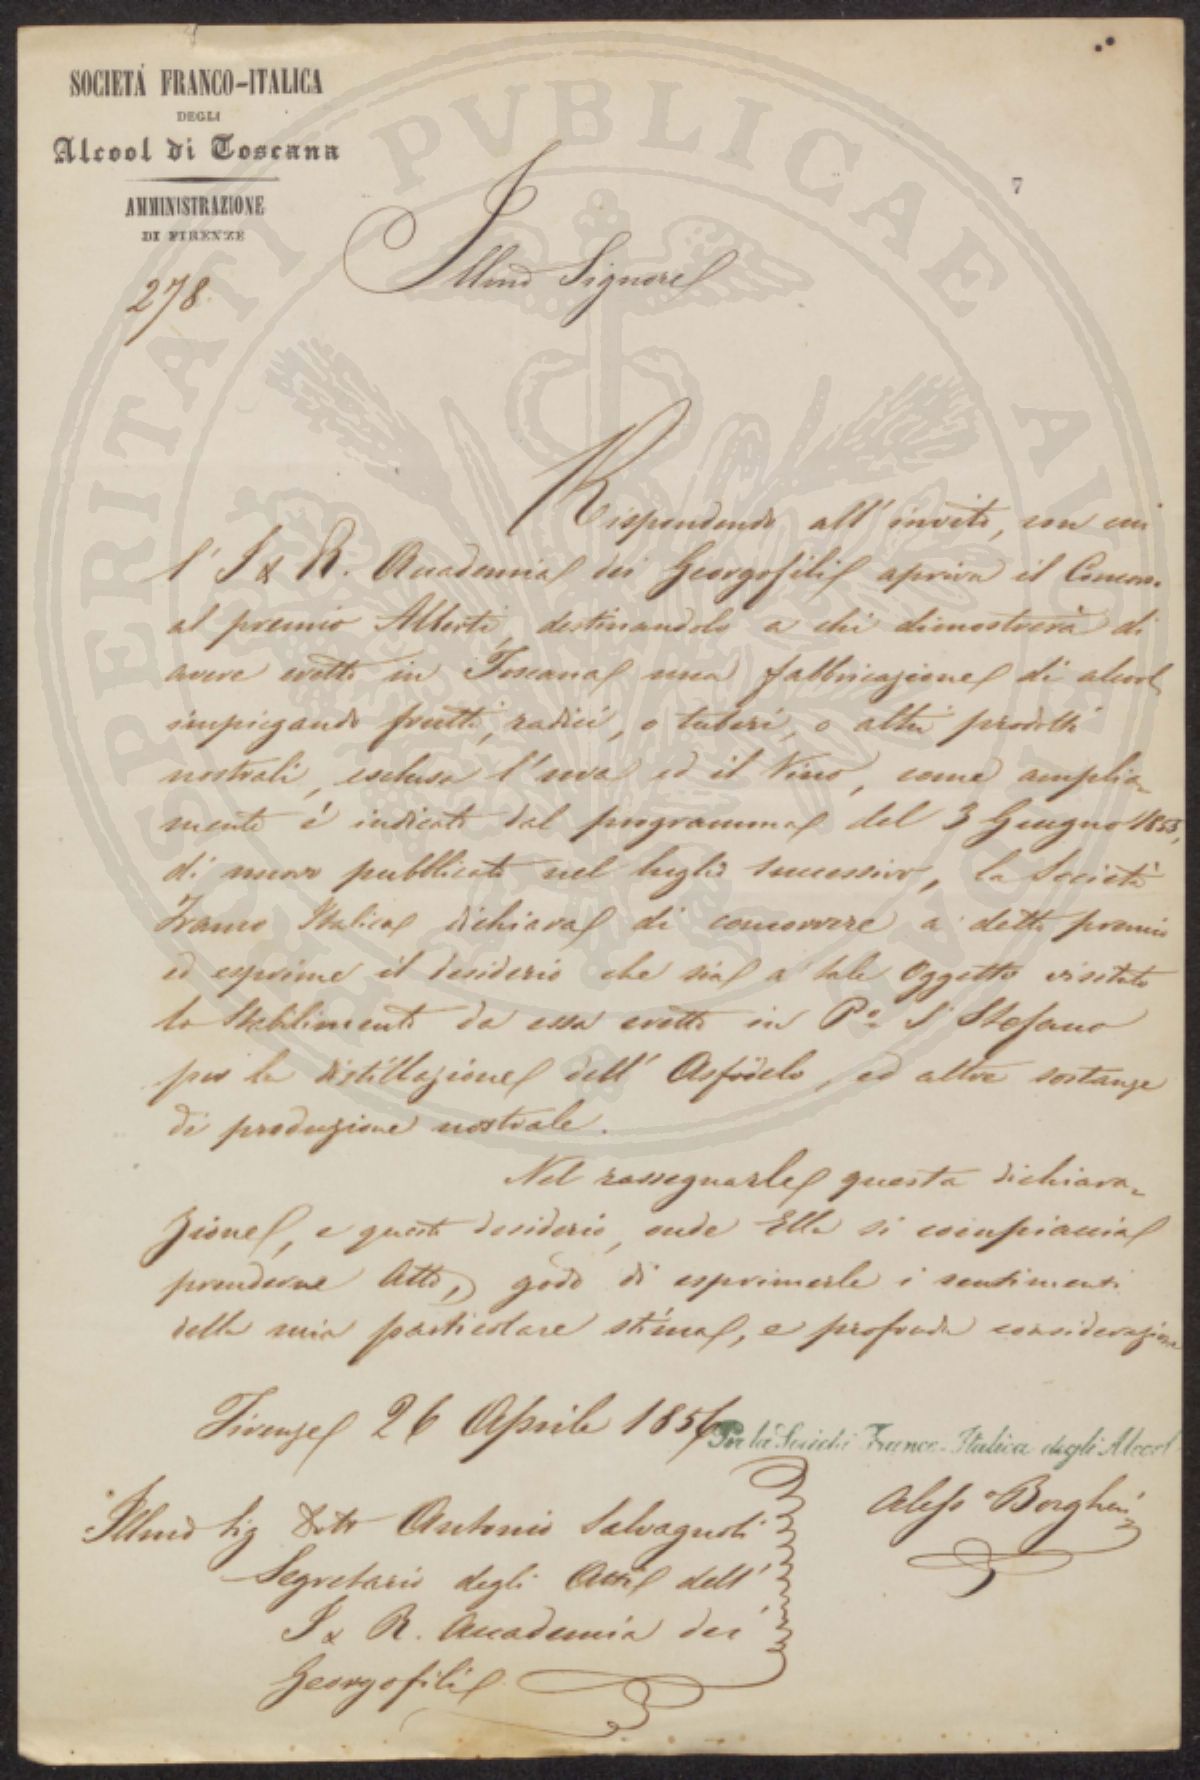 SOCIETÁ FRANCO-ITALICA
DEGLI
Alcool di Toscana
AMMINISTRAZIONE
DI FIRENZE
278.
7
Illmo Signore
Rispondendo all' invito, con cui
l' I & R. Accademia dei Georgofili apriva il Concorso
al premio Alberti, destinandolo a chi dimostrerà di
avere eretto in Toscana una fabbricazione di alcool
impiegando frutti, radici, o tuberi, o altri prodotti
nostrali, esclusa l'uva ed il Vino, come amplia=
mente è indicato dal programma del 3 Giugno 1853,
di nuovo pubblicato nel luglio successivo, la Società
Franco Italica dichiara di concorrere a detto premio
ed esprime il desiderio che sia a tale Oggetto visitato
lo Stabilimento da essa eretto in Pº S Stefano
per la distillazione dell' Asfodelo, ed altre sostanze
di produzione nostrale.
Nel rassegnarle questa dichiara=
zione, e questo desiderio, onde Ella si compiaccia
prenderne Atto, godo di esprimerle i sentimenti
della mia particolare stima, e profonda considerazione
Firenze 26 Aprile 1856
Per la Società Franco-Italica degli Alcool
Aless Borgheri
Illmo Sig Dotto Antonio Salvagnoli
Segretario degli Atti dell'
I & R. Accademia dei
Georgofili
PROSPERITATI PVBLICAE AVGENDAE